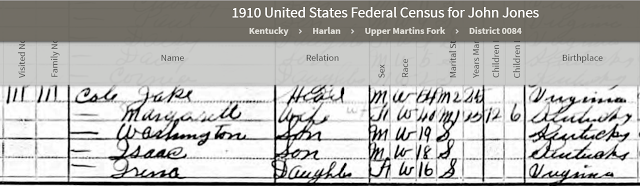 1910 United States Federal Census for John Jones
Kentucky > Harlan > Upper Martins Fork > District 0084
Visited No Family No Name Relation Sex Race Marital S Years Mar Children Children Birthplace
111 111 Cole Jake Head M W M2 Virginia
— Margarett Wife W M1 12 6 Kentucky
— Washington Son M W 19 S Kentucky
— Isaac Son M W 18 S Kentucky
— Irena Daughter W 16 S Virginia